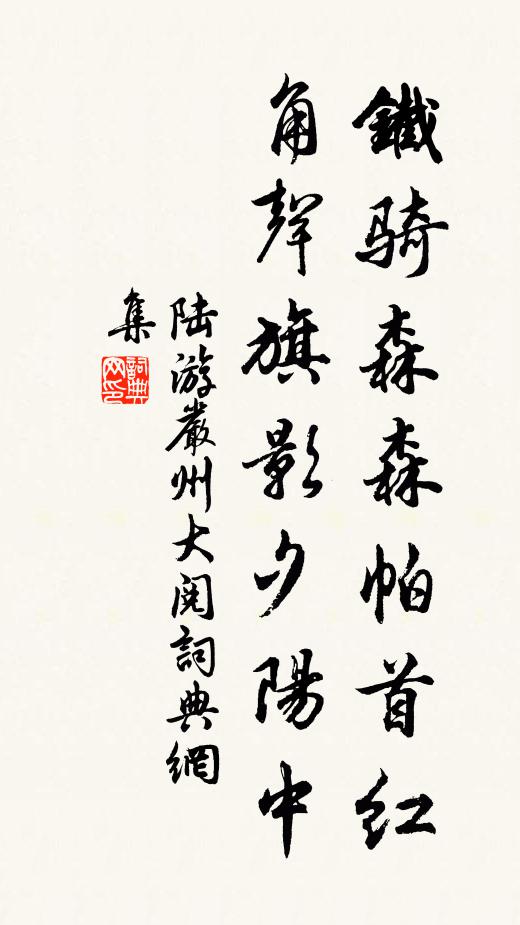 鐵騎森森帕首紅
角聲旗影夕陽中
陸游嚴州大閱詞典網
集
詞典
网印